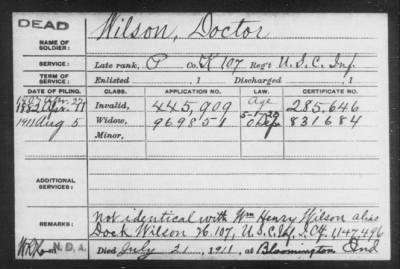 DEAD
Wilson, Doctor
NAME OF SOLDIER:
SERVICE: Late rank, P Co. K 107 Reg't U.S.C. Inf.
TERM OF SERVICE: Enlisted , 1 Discharged , 1
DATE OF FILING. CLASS. APPLICATION NO. LAW. CERTIFICATE NO.
Invalid, 445,909 Age 285,646
1911 Aug 5 Widow, 969851 831684
Minor,
ADDITIONAL SERVICES:
REMARKS: Not identical with Wm Henry Wilson alias
Dock Wilson 107, U.S.C. Inf. 1,147,496
N.D.A. Died July 21, 1911, at Bloomington Ind